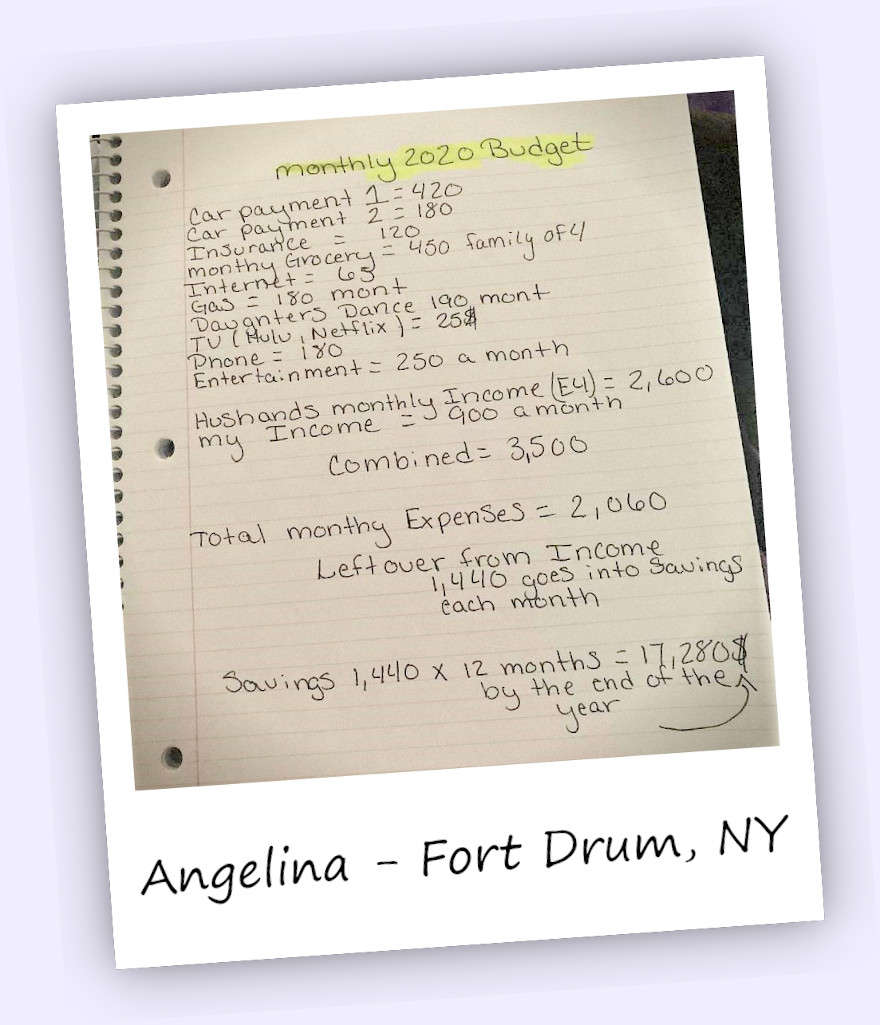 monthly 2020 Budget
Car payment 1 = 420
Car payment 2 = 180
Insurance = 120
monthy Grocery = 450 family of 4
Internet = 65
Gas = 180 mont
Daughters Dance 190 mont
TV (Hulu, Netflix) = 25$
Phone = 180
Entertainment = 250 a month
Husbands monthly Income (E4) = 2,600
my Income = 900 a month
Combined = 3,500
Total monthy Expenses = 2,060
Left over from Income
1,440 goes into Savings
each month
Savings 1,440 x 12 months = 17,280$
by the end of the
year
Angelina - Fort Drum, NY